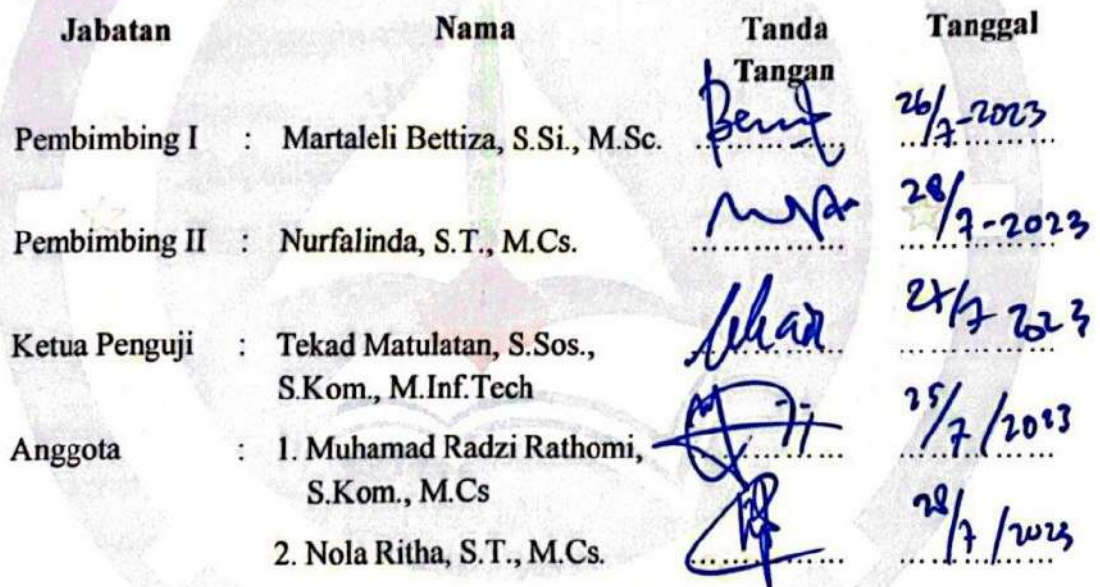 Jabatan Nama Tanda Tangan Tanggal
Pembimbing I : Martaleli Bettiza, S.Si., M.Sc. .............. 26/7-2023
Pembimbing II : Nurfalinda, S.T., M.Cs. .............. 28/7-2023
Ketua Penguji : Tekad Matulatan, S.Sos., .............. 27/7 2023
S.Kom., M.Inf.Tech
Anggota : 1. Muhamad Radzi Rathomi, .............. 25/7/2023
S.Kom., M.Cs
2. Nola Ritha, S.T., M.Cs. .............. 28/7/2023